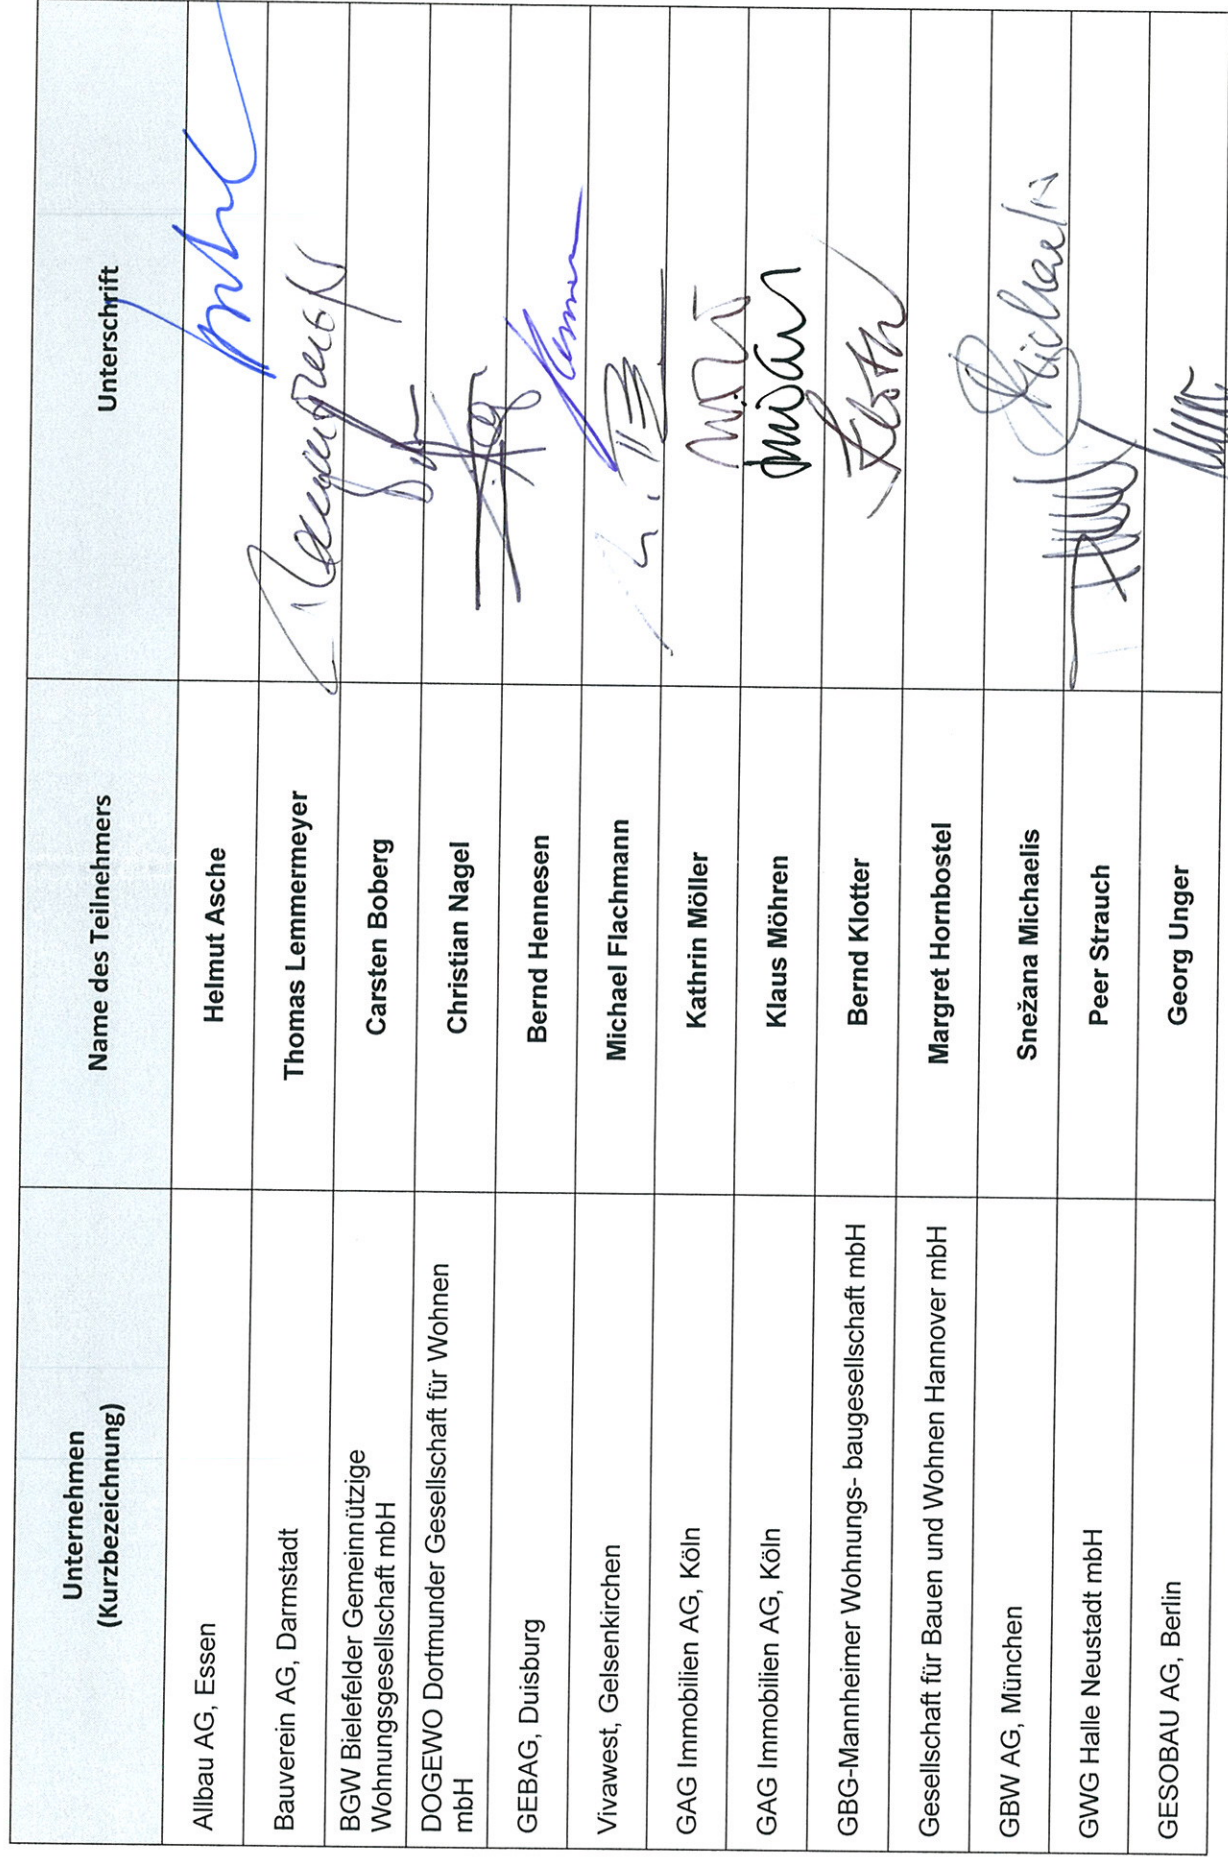 Unternehmen
(Kurzbezeichnung)
Name des Teilnehmers
Unterschrift
Allbau AG, Essen
Helmut Asche
Bauverein AG, Darmstadt
Thomas Lemmermeyer
BGW Bielefelder Gemeinnützige
Wohnungsgesellschaft mbH
Carsten Boberg
DOGEWO Dortmunder Gesellschaft für Wohnen
mbH
Christian Nagel
GEBAG, Duisburg
Bernd Hennesen
Vivawest, Gelsenkirchen
Michael Flachmann
GAG Immobilien AG, Köln
Kathrin Möller
GAG Immobilien AG, Köln
Klaus Möhren
GBG-Mannheimer Wohnungs- baugesellschaft mbH
Bernd Klotter
Gesellschaft für Bauen und Wohnen Hannover mbH
Margret Hornbostel
GBW AG, München
Snežana Michaelis
Michaelis
GWG Halle Neustadt mbH
Peer Strauch
GESOBAU AG, Berlin
Georg Unger